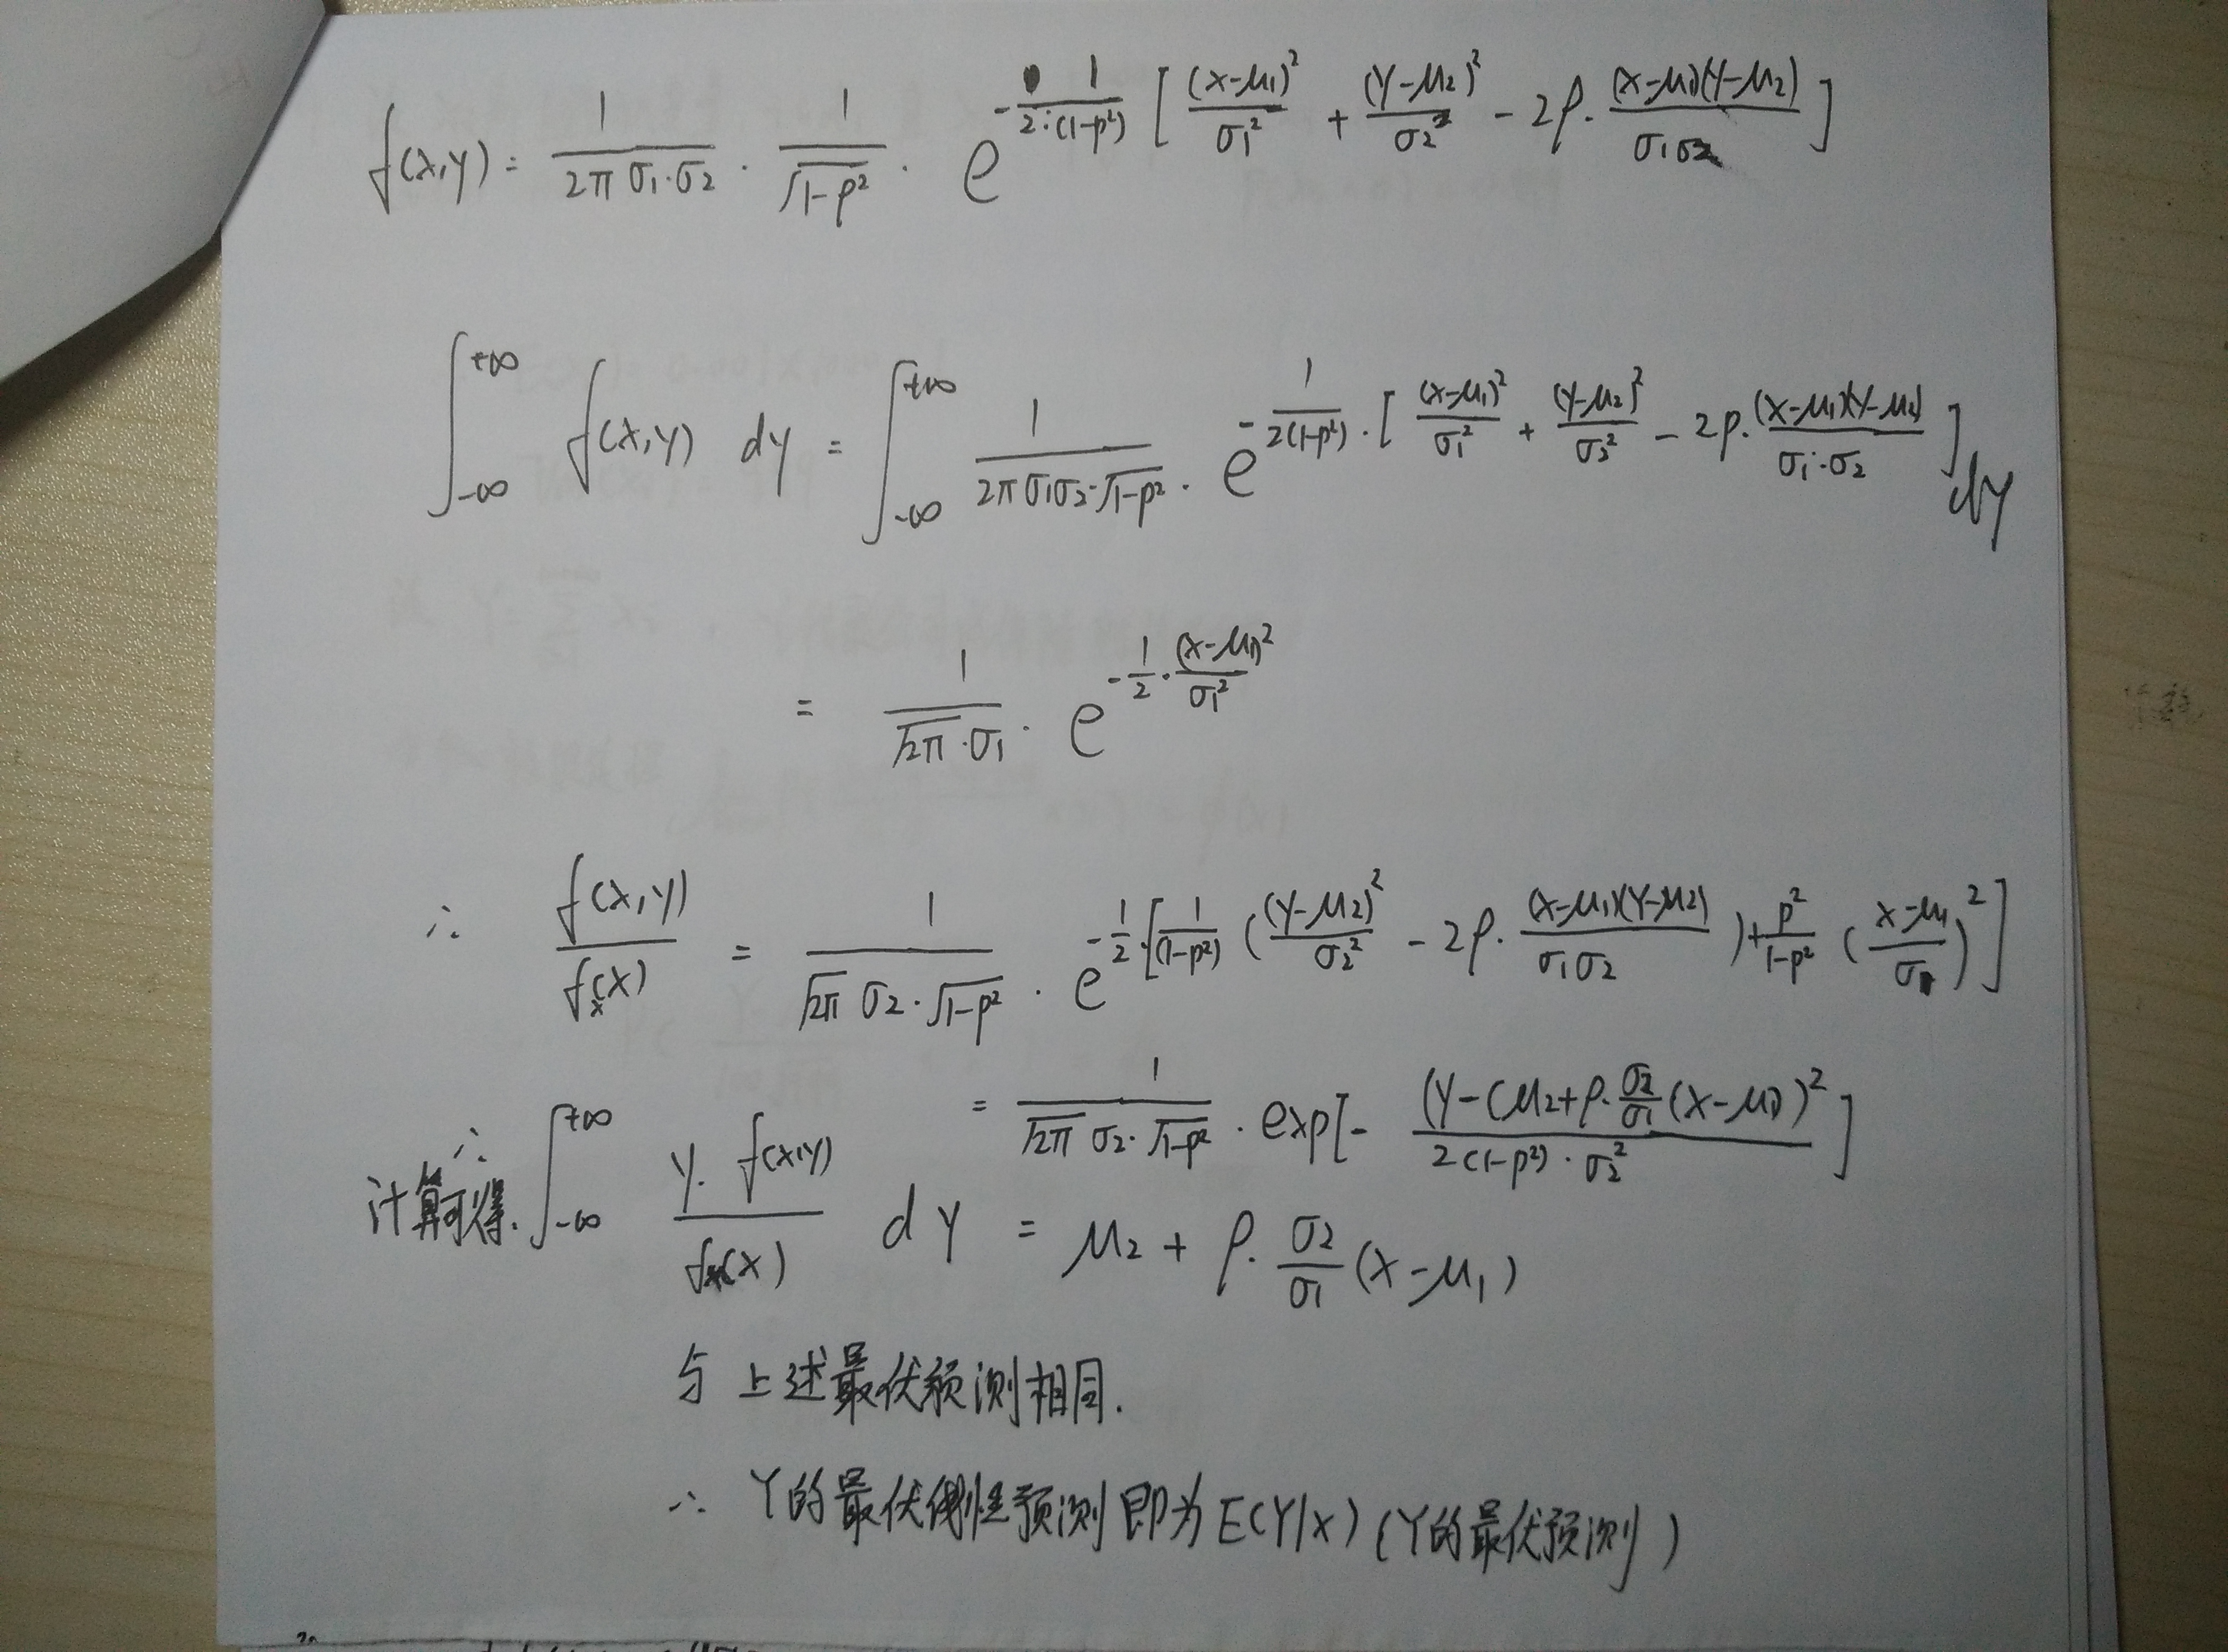 f(x,y) = \frac{1}{2π σ₁·σ₂} · \frac{1}{\sqrt{1-ρ²}} · e^{-\frac{1}{2·(1-ρ²)} [ \frac{(x-μ₁)²}{σ₁²} + \frac{(y-μ₂)²}{σ₂²} - 2ρ· \frac{(x-μ₁)(y-μ₂)}{σ₁σ₂} ]}
\int_{-∞}^{+∞} f(x,y) dy = \int_{-∞}^{+∞} \frac{1}{2π σ₁σ₂·\sqrt{1-ρ²}} · e^{-\frac{1}{2(1-ρ²)} · [ \frac{(x-μ₁)²}{σ₁²} + \frac{(y-μ₂)²}{σ₂²} - 2ρ· \frac{(x-μ₁)(y-μ₂)}{σ₁·σ₂} ]} dy
= \frac{1}{\sqrt{2π}·σ₁} · e^{-\frac{1}{2} · \frac{(x-μ₁)²}{σ₁²}}
∴ \frac{f(x,y)}{f_x(x)} = \frac{1}{\sqrt{2π} σ₂·\sqrt{1-ρ²}} · e^{-\frac{1}{2}·[ \frac{1}{(1-ρ²)} ( \frac{(y-μ₂)²}{σ₂²} - 2ρ· \frac{(x-μ₁)(y-μ₂)}{σ₁σ₂} ) + \frac{ρ²}{1-ρ²} ( \frac{x-μ₁}{σ₁} )² ]}
= \frac{1}{\sqrt{2π} σ₂·\sqrt{1-ρ²}} · exp[ - \frac{(y-(μ₂+ρ·\frac{σ₂}{σ₁}(x-μ₁))²}{2(1-ρ²)·σ₂²} ]
∴ 计算可得. \int_{-∞}^{+∞} \frac{y· f(x,y)}{f_x(x)} dy = μ₂ + ρ· \frac{σ₂}{σ₁} (x-μ₁)
与上述最优预测相同.
∴ Y的最优线性预测即为E(Y|X) (Y的最优预测)